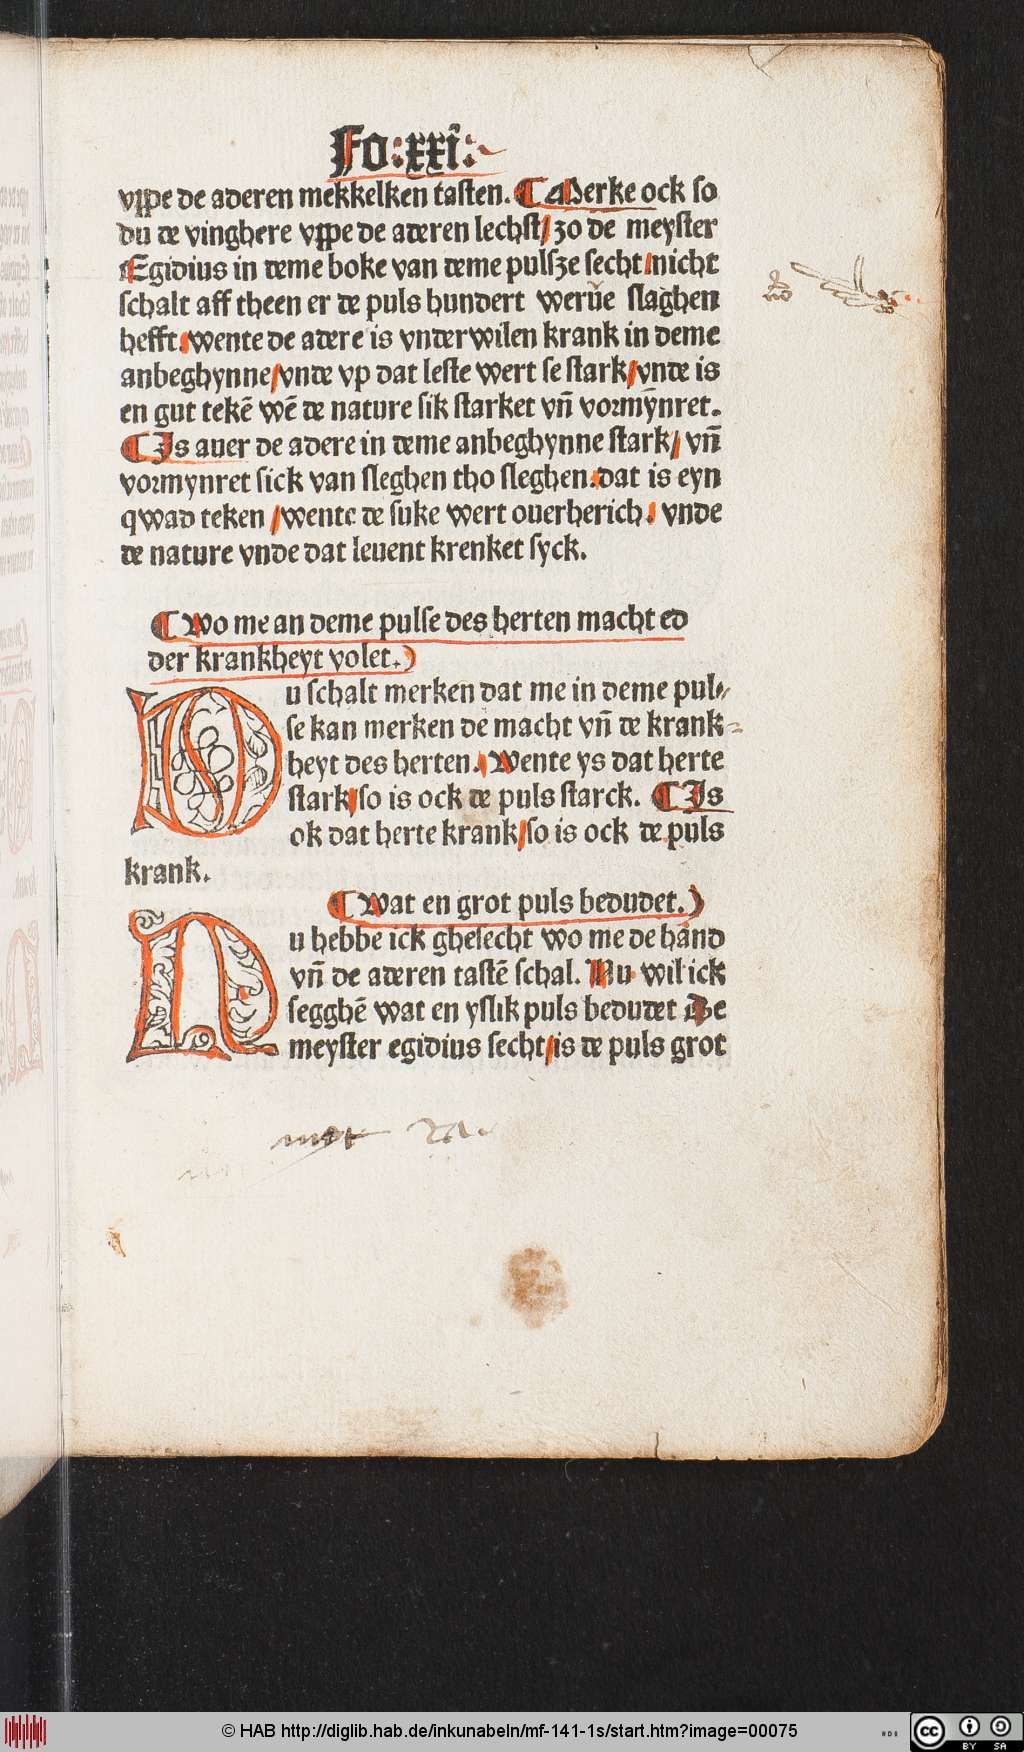 Fo:xxi:
vppe de aderen mekkelken tasten. ¶ Merke ock so
du de vinghere vppe de aderen lechst/ zo de meyster
Egidius in deme boke van deme pulsze secht/nicht
schalt aff theen er de puls hundert werūe slaghen
hefft. wente de adere is vnderwilen krank in deme
anbeghynne/vnde vp dat leste wert se stark/vnde is
en gut tekē wē de nature sik starket vn̄ vormȳnret.
¶ Is auer de adere in deme anbeghynne stark/ vn̄
vormynret sick van sleghen tho sleghen. dat is eyn
qwad teken /wente de suke wert ouerherich/ vnde
de nature vnde dat leuent krenket syck.
¶ Wo me an deme pulse des herten macht ed
der krankheyt volet.)
Du schalt merken dat me in deme pul⸗
se kan merken de macht vn̄ de krank⸗
heyt des herten. Wente ys dat herte
stark/so is ock de puls starck. ¶ Is
ok dat herte krank/so is ock de puls
krank.
¶ Wat en grot puls bedudet.)
Nu hebbe ick ghesecht wo me de hand
vn̄ de aderen tastē schal. Nu wil ick
segghē wat en yslik puls bedudet De
meyster egidius secht/is de puls grot
© HAB http://diglib.hab.de/inkunabeln/mf-141-1s/start.htm?image=00075
HAB
CC BY SA